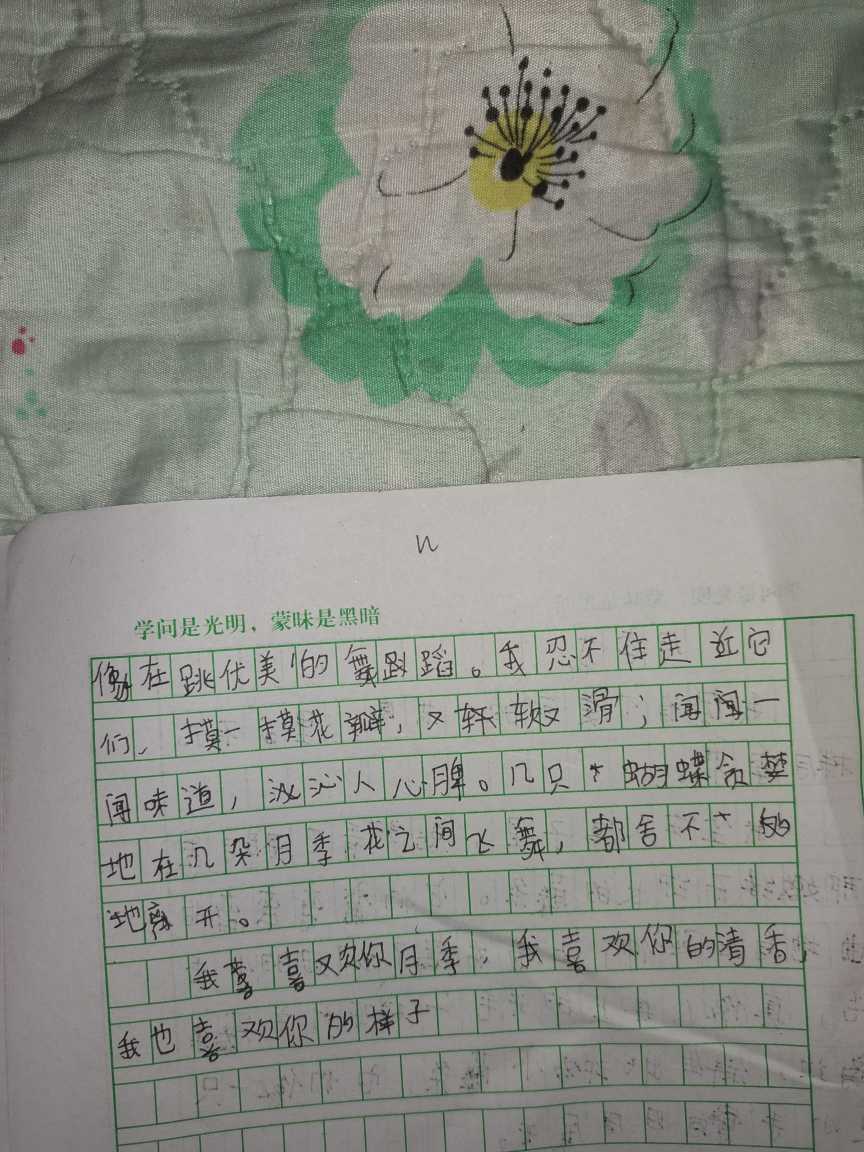 n
学问是光明，蒙昧是黑暗
像在跳优美的舞蹈。我忍不住走近它
们，摸一摸花瓣，又软又滑；闻闻一
闻味道，沁人心脾。几只蝴蝶贪婪
地在几朵月季花之间飞舞，都舍不的
地离开。
我喜欢你月季，我喜欢你的清香，
我也喜欢你的样子